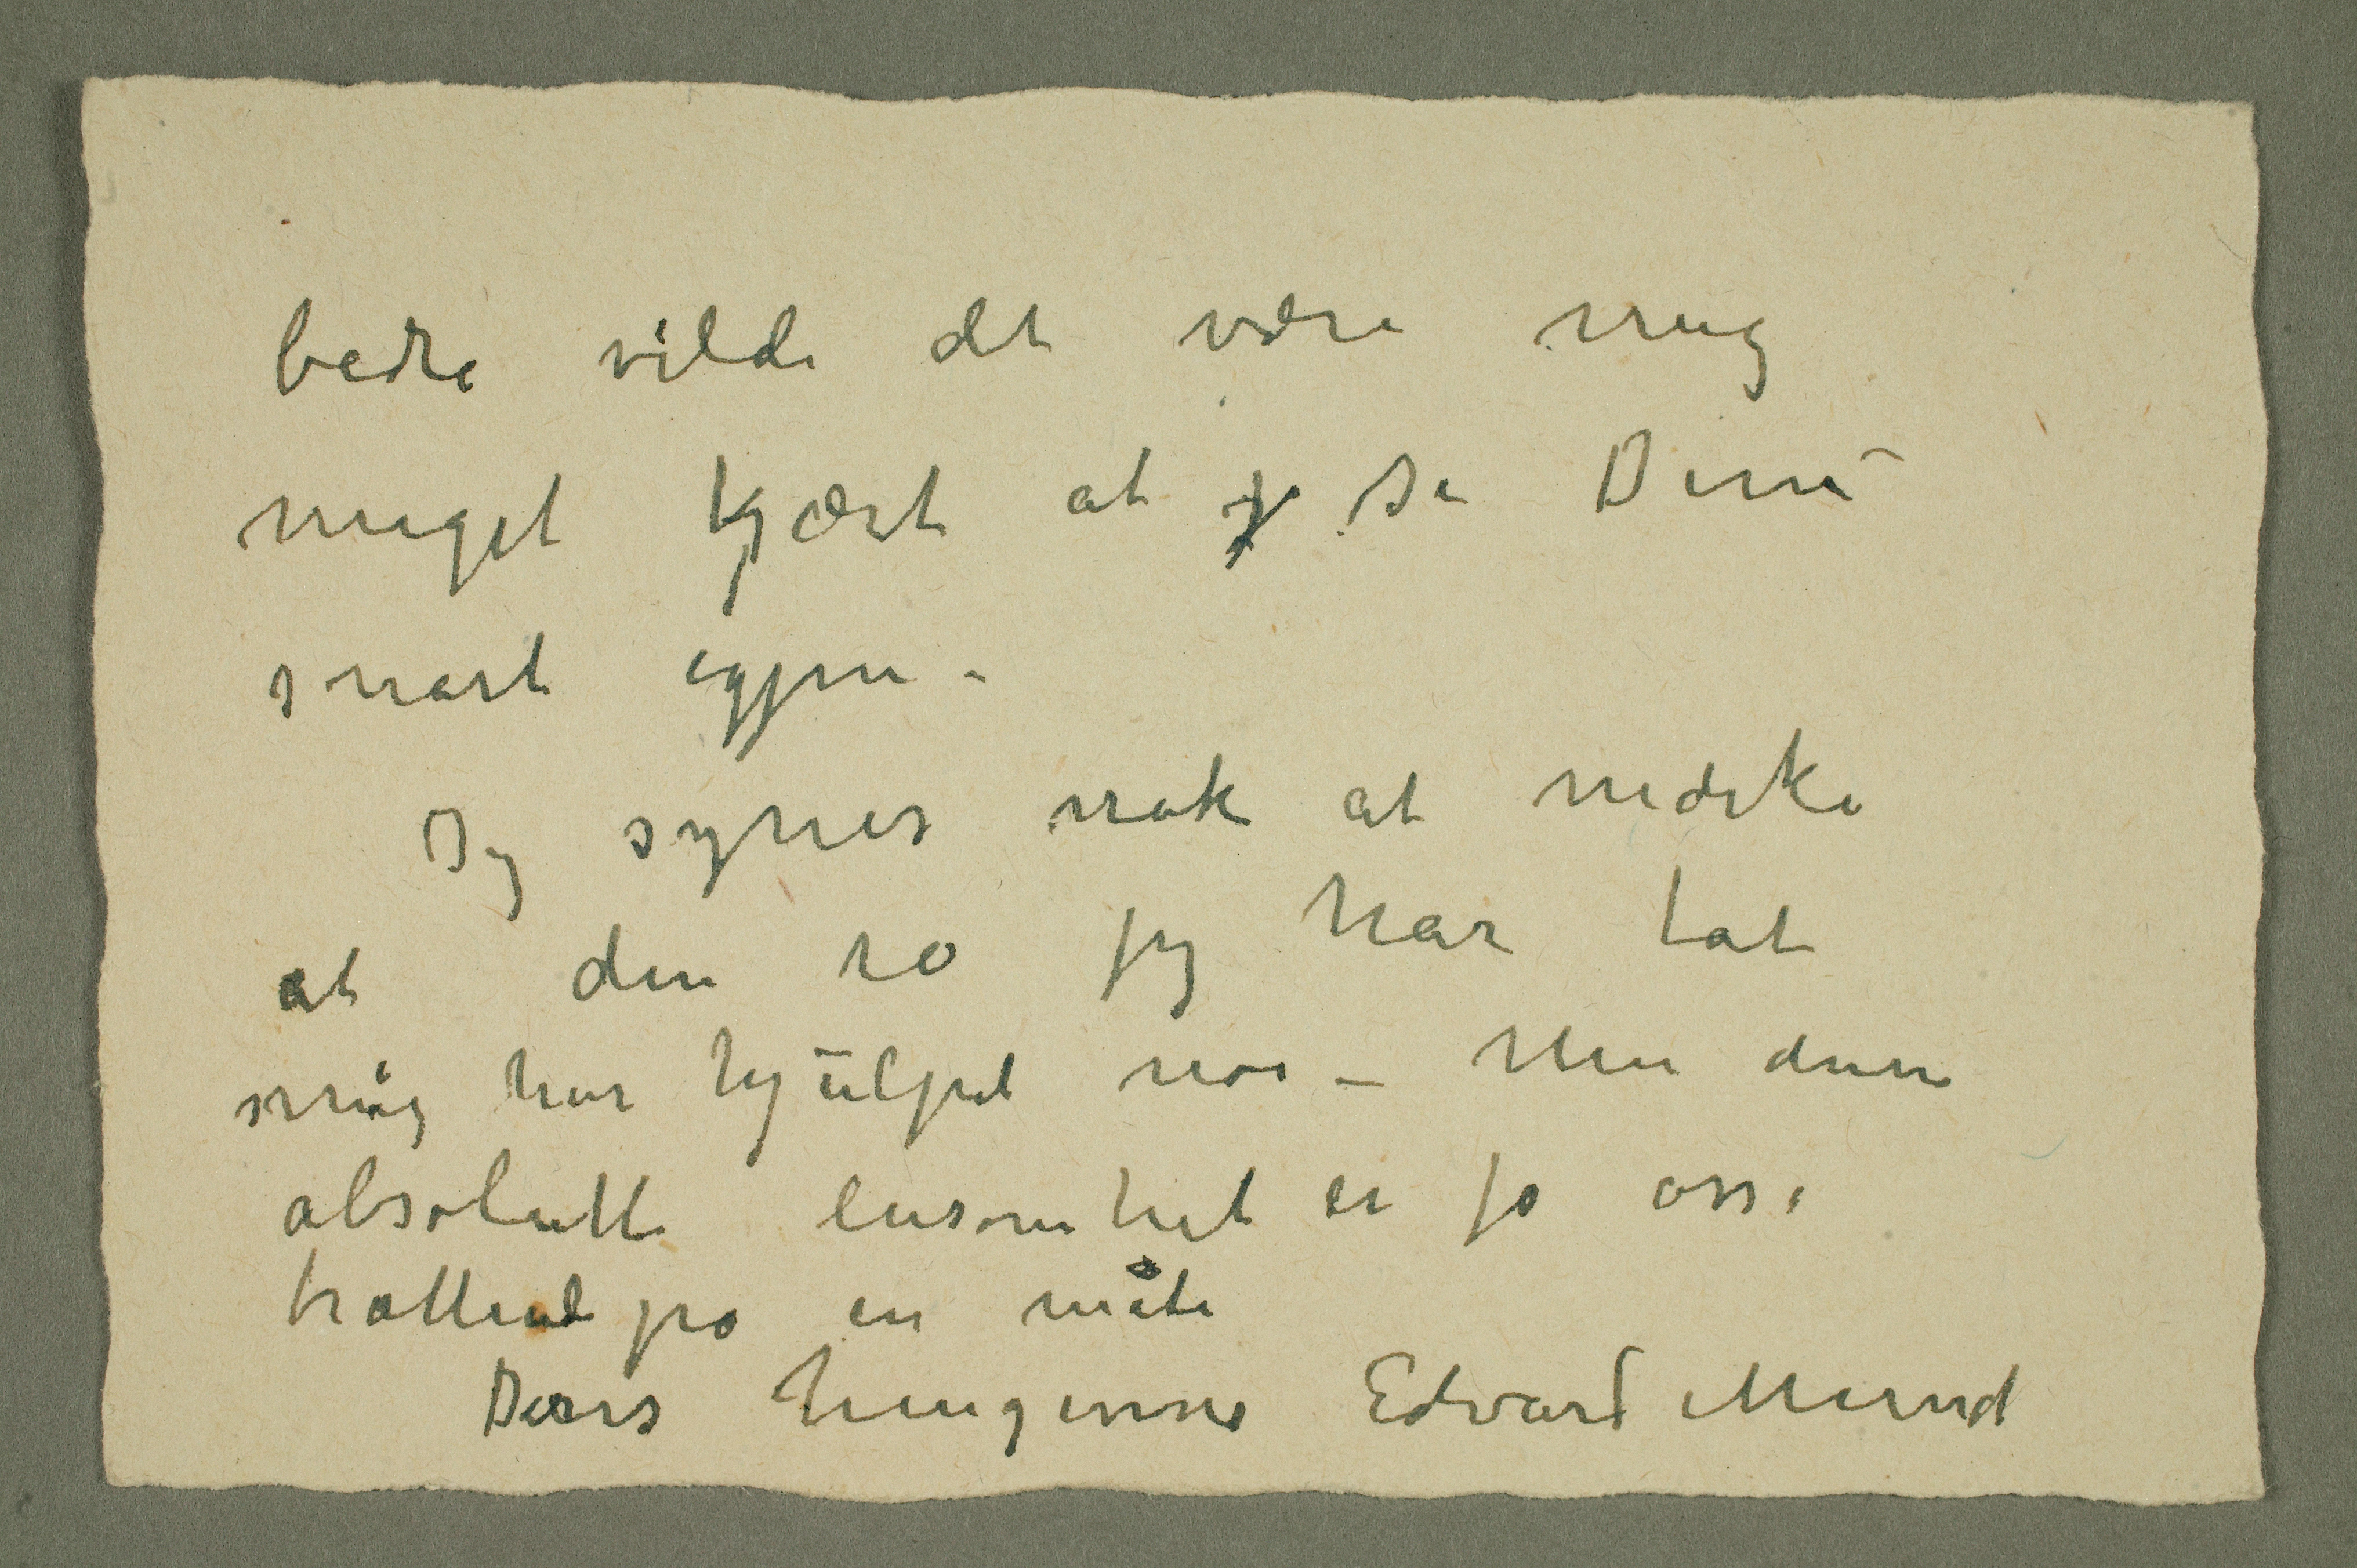 bedre vilde det være mig
meget kjært at se Dem
snart igjen –
Jeg synes nok at mærke
at den ro jeg har tat
mig har hjulpet noe – Men denne
absolutte ensomhet er jo osse
trættende på en måte
Deres hengivne Edvard Munch